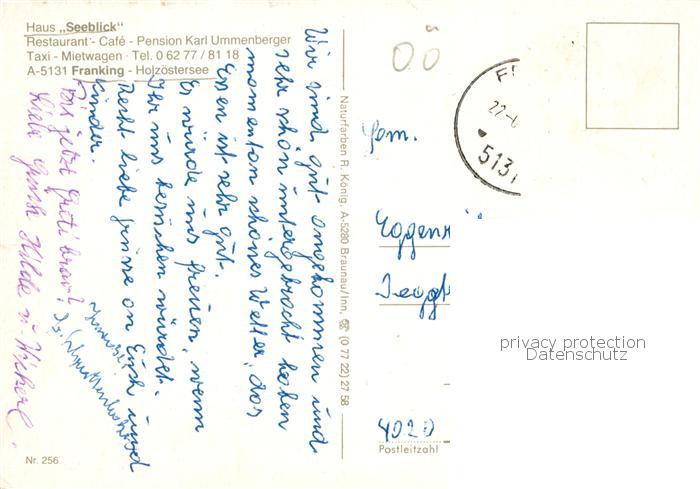 Haus „Seeblick"
Restaurant - Café - Pension Karl Ummenberger
Taxi - Mietwagen - Tel. 0 62 77 / 81 18
A-5131 Franking - Holzöstersee
Wir sind gut angekommen und
sehr schön untergebracht haben
momentan schönes Wetter, das
Essen ist sehr gut.
Es würde uns freuen, wenn
Ihr uns besuchen würdet.
Recht liebe Grüsse an Euch und
Kinder.
jetzt brav?
Liebe Grüße Hilde u.
Naturfarben R. König, A-5280 Braunau/Inn, ☎ (0 77 22) 27 58
OÖ
22-
5131
Fam.
4020
Postleitzahl
privacy protection
Datenschutz
Nr. 256